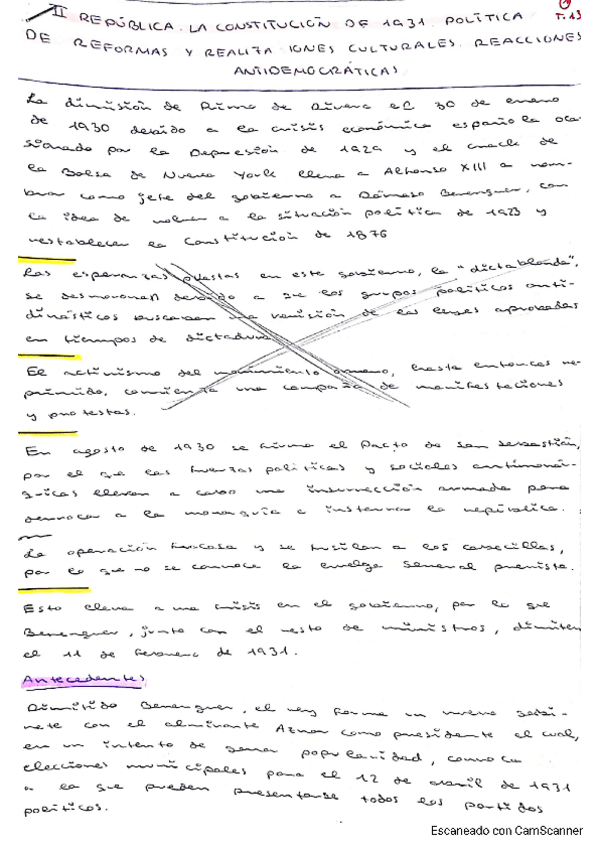 ① T.13
II REPÚBLICA. LA CONSTITUCIÓN DE 1931. POLÍTICA
DE REFORMAS Y REALIZACIONES CULTURALES. REACCIONES
ANTIDEMOCRÁTICAS
La dimisión de Primo de Rivera el 30 de enero
de 1930 debido a la crisis económica española oca-
sionada por la Depresión de 1929 y el crack de
la Bolsa de Nueva York lleva a Alfonso XIII a nom-
brar como jefe del gobierno a Dámaso Berenguer, con
la idea de volver a la situación política de 1923 y
restablecer la Constitución de 1876
Las esperanzas puestas en este gobierno, la "dictablanda",
se desmoronan debido a que los grupos políticos anti-
dinásticos buscaban la revisión de las leyes aprobadas
en tiempos de dictadura
El activismo del movimiento obrero, hasta entonces re-
primido, comienza una campaña de manifestaciones
y protestas.
En agosto de 1930 se firma el Pacto de San Sebastián,
por el que las fuerzas políticas y sociales antimonár-
quicas llevan a cabo una insurrección armada para
derrocar a la monarquía e instaurar la república.
La operación fracasa y se fusilan a los cabecillas,
por lo que no se convoca la huelga general prevista.
Esto lleva a una crisis en el gobierno, por lo que
Berenguer, junto con el resto de ministros, dimiten
el 11 de febrero de 1931.
Antecedentes
Dimitido Berenguer, el rey forma un nuevo gabi-
nete con el almirante Aznar como presidente el cual,
en un intento de ganar popularidad, convoca
elecciones municipales para el 12 de abril de 1931
a la que pueden presentarse todos los partidos
políticos.
Escaneado con CamScanner